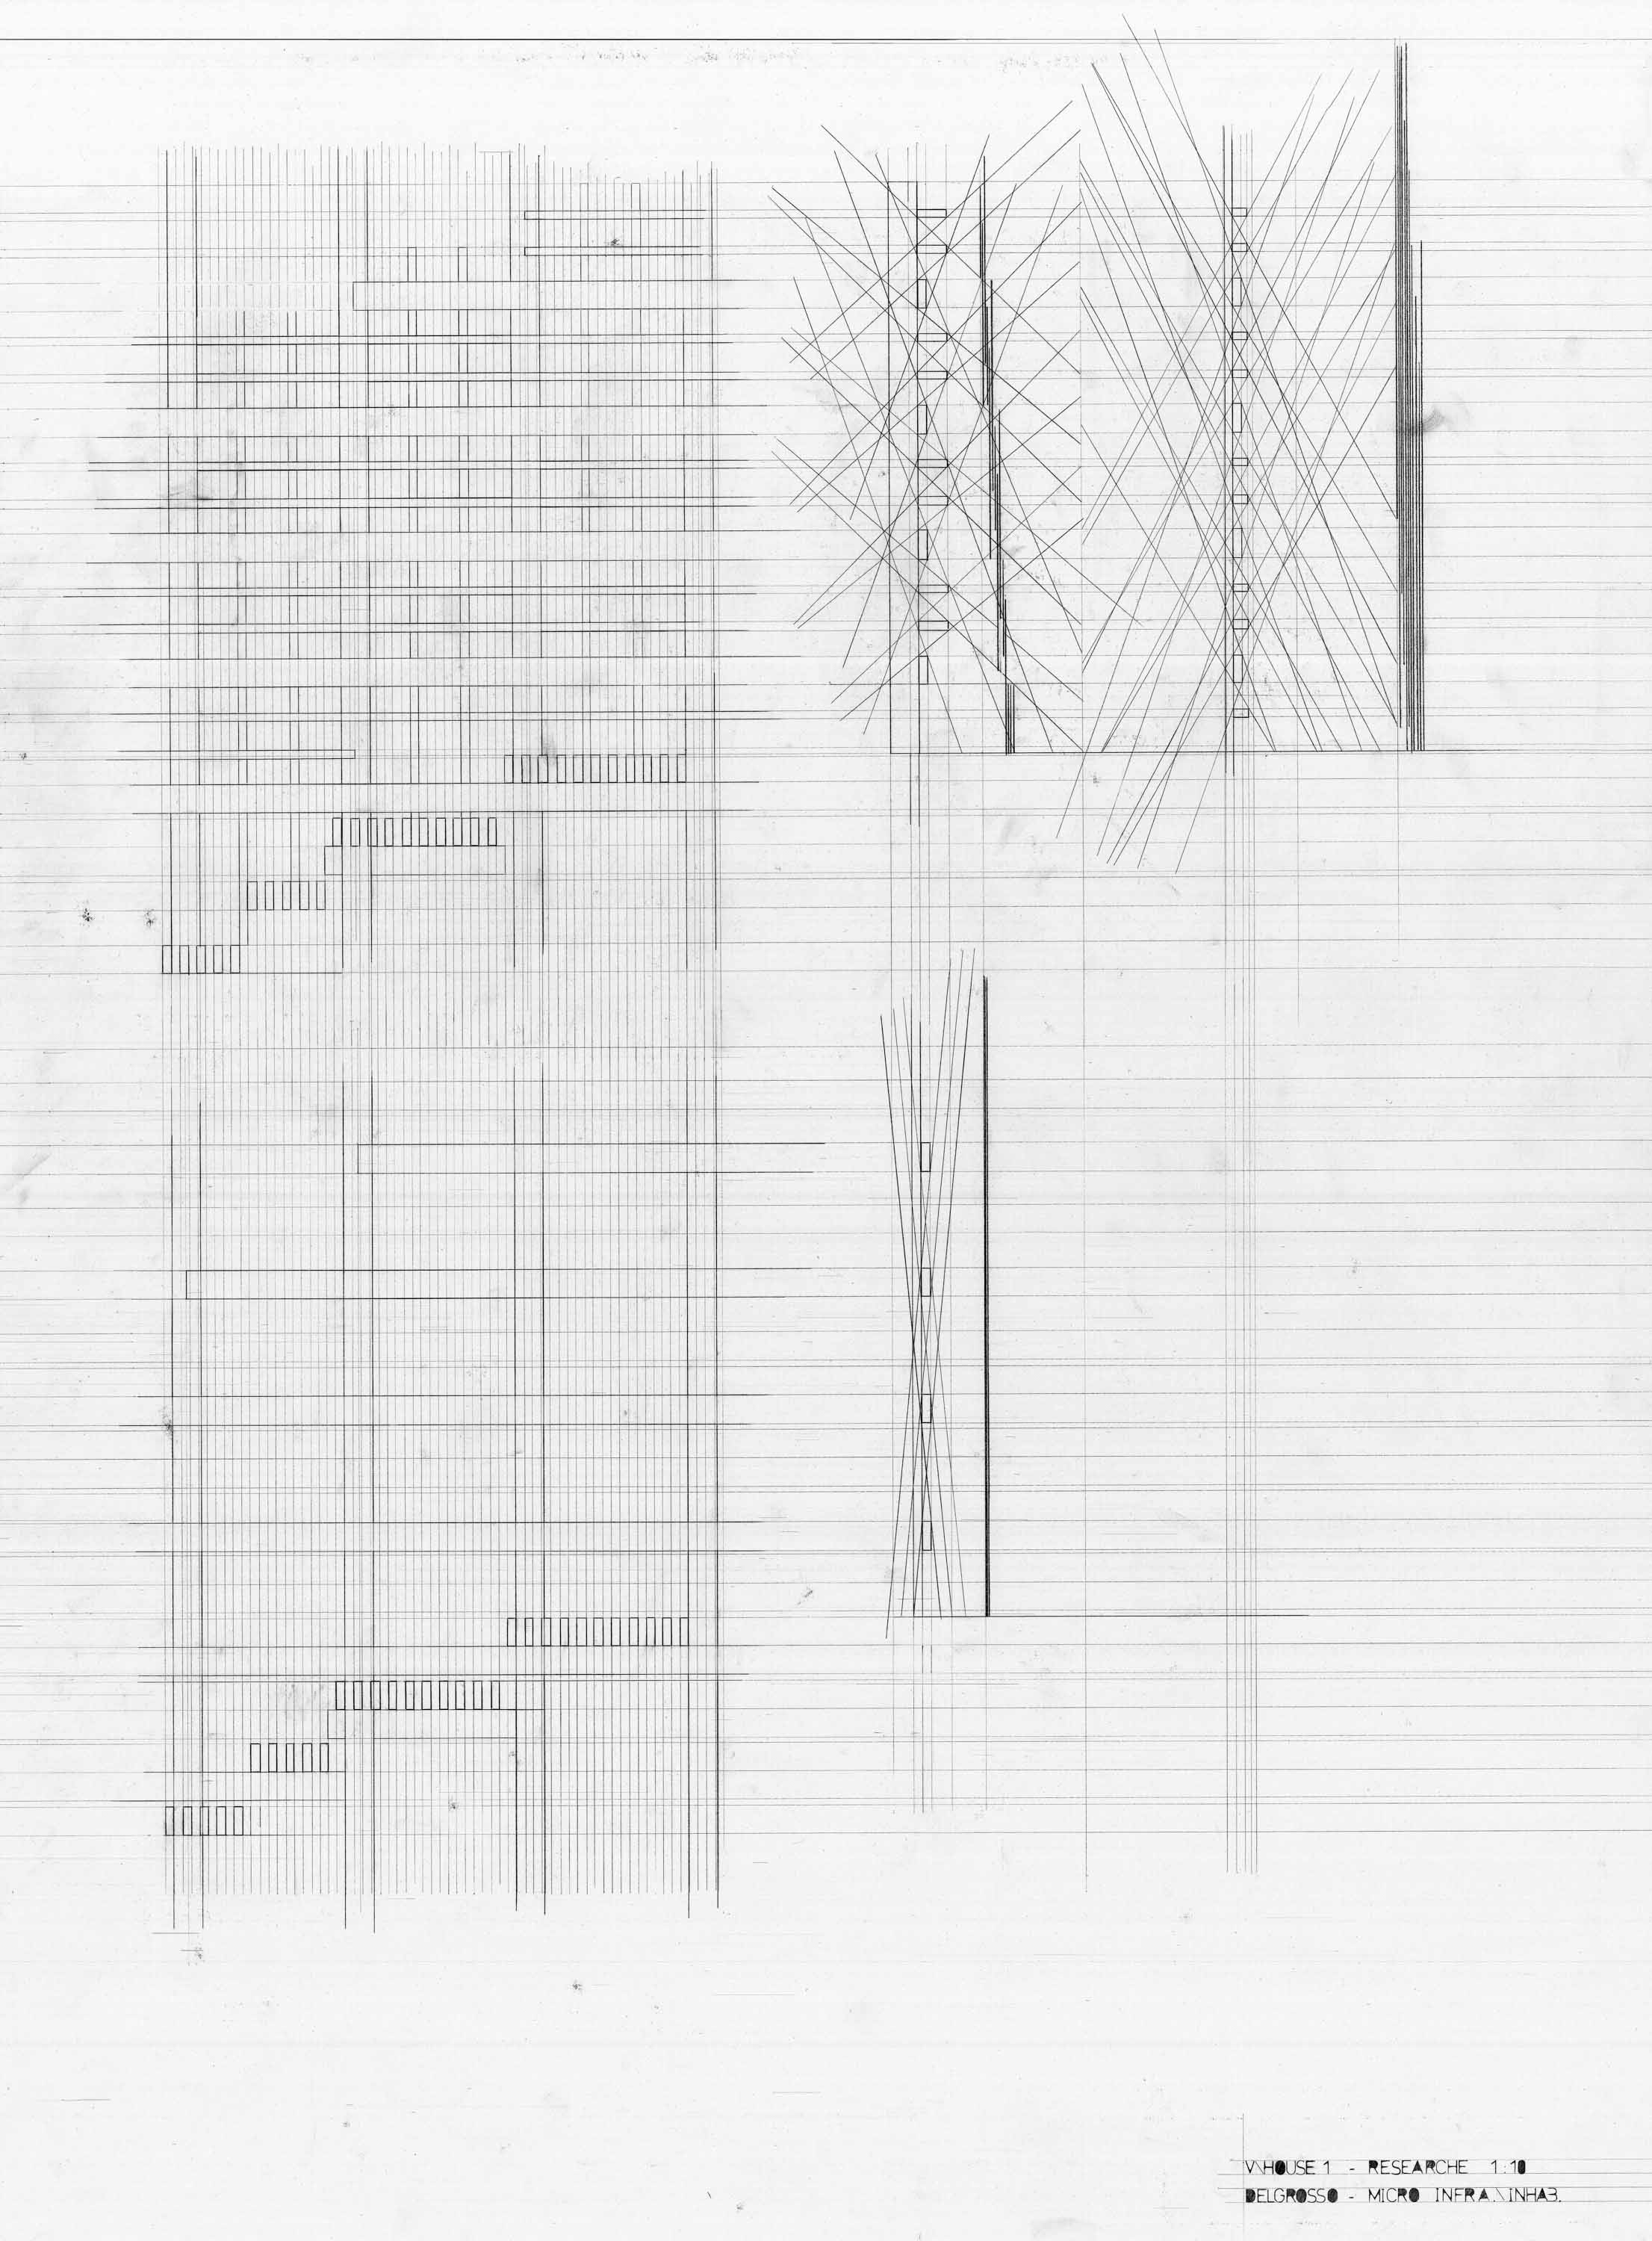 V\HOUSE 1 - RESEARCHE 1:10
DELGROSSO - MICRO INFRA.\INHAB.